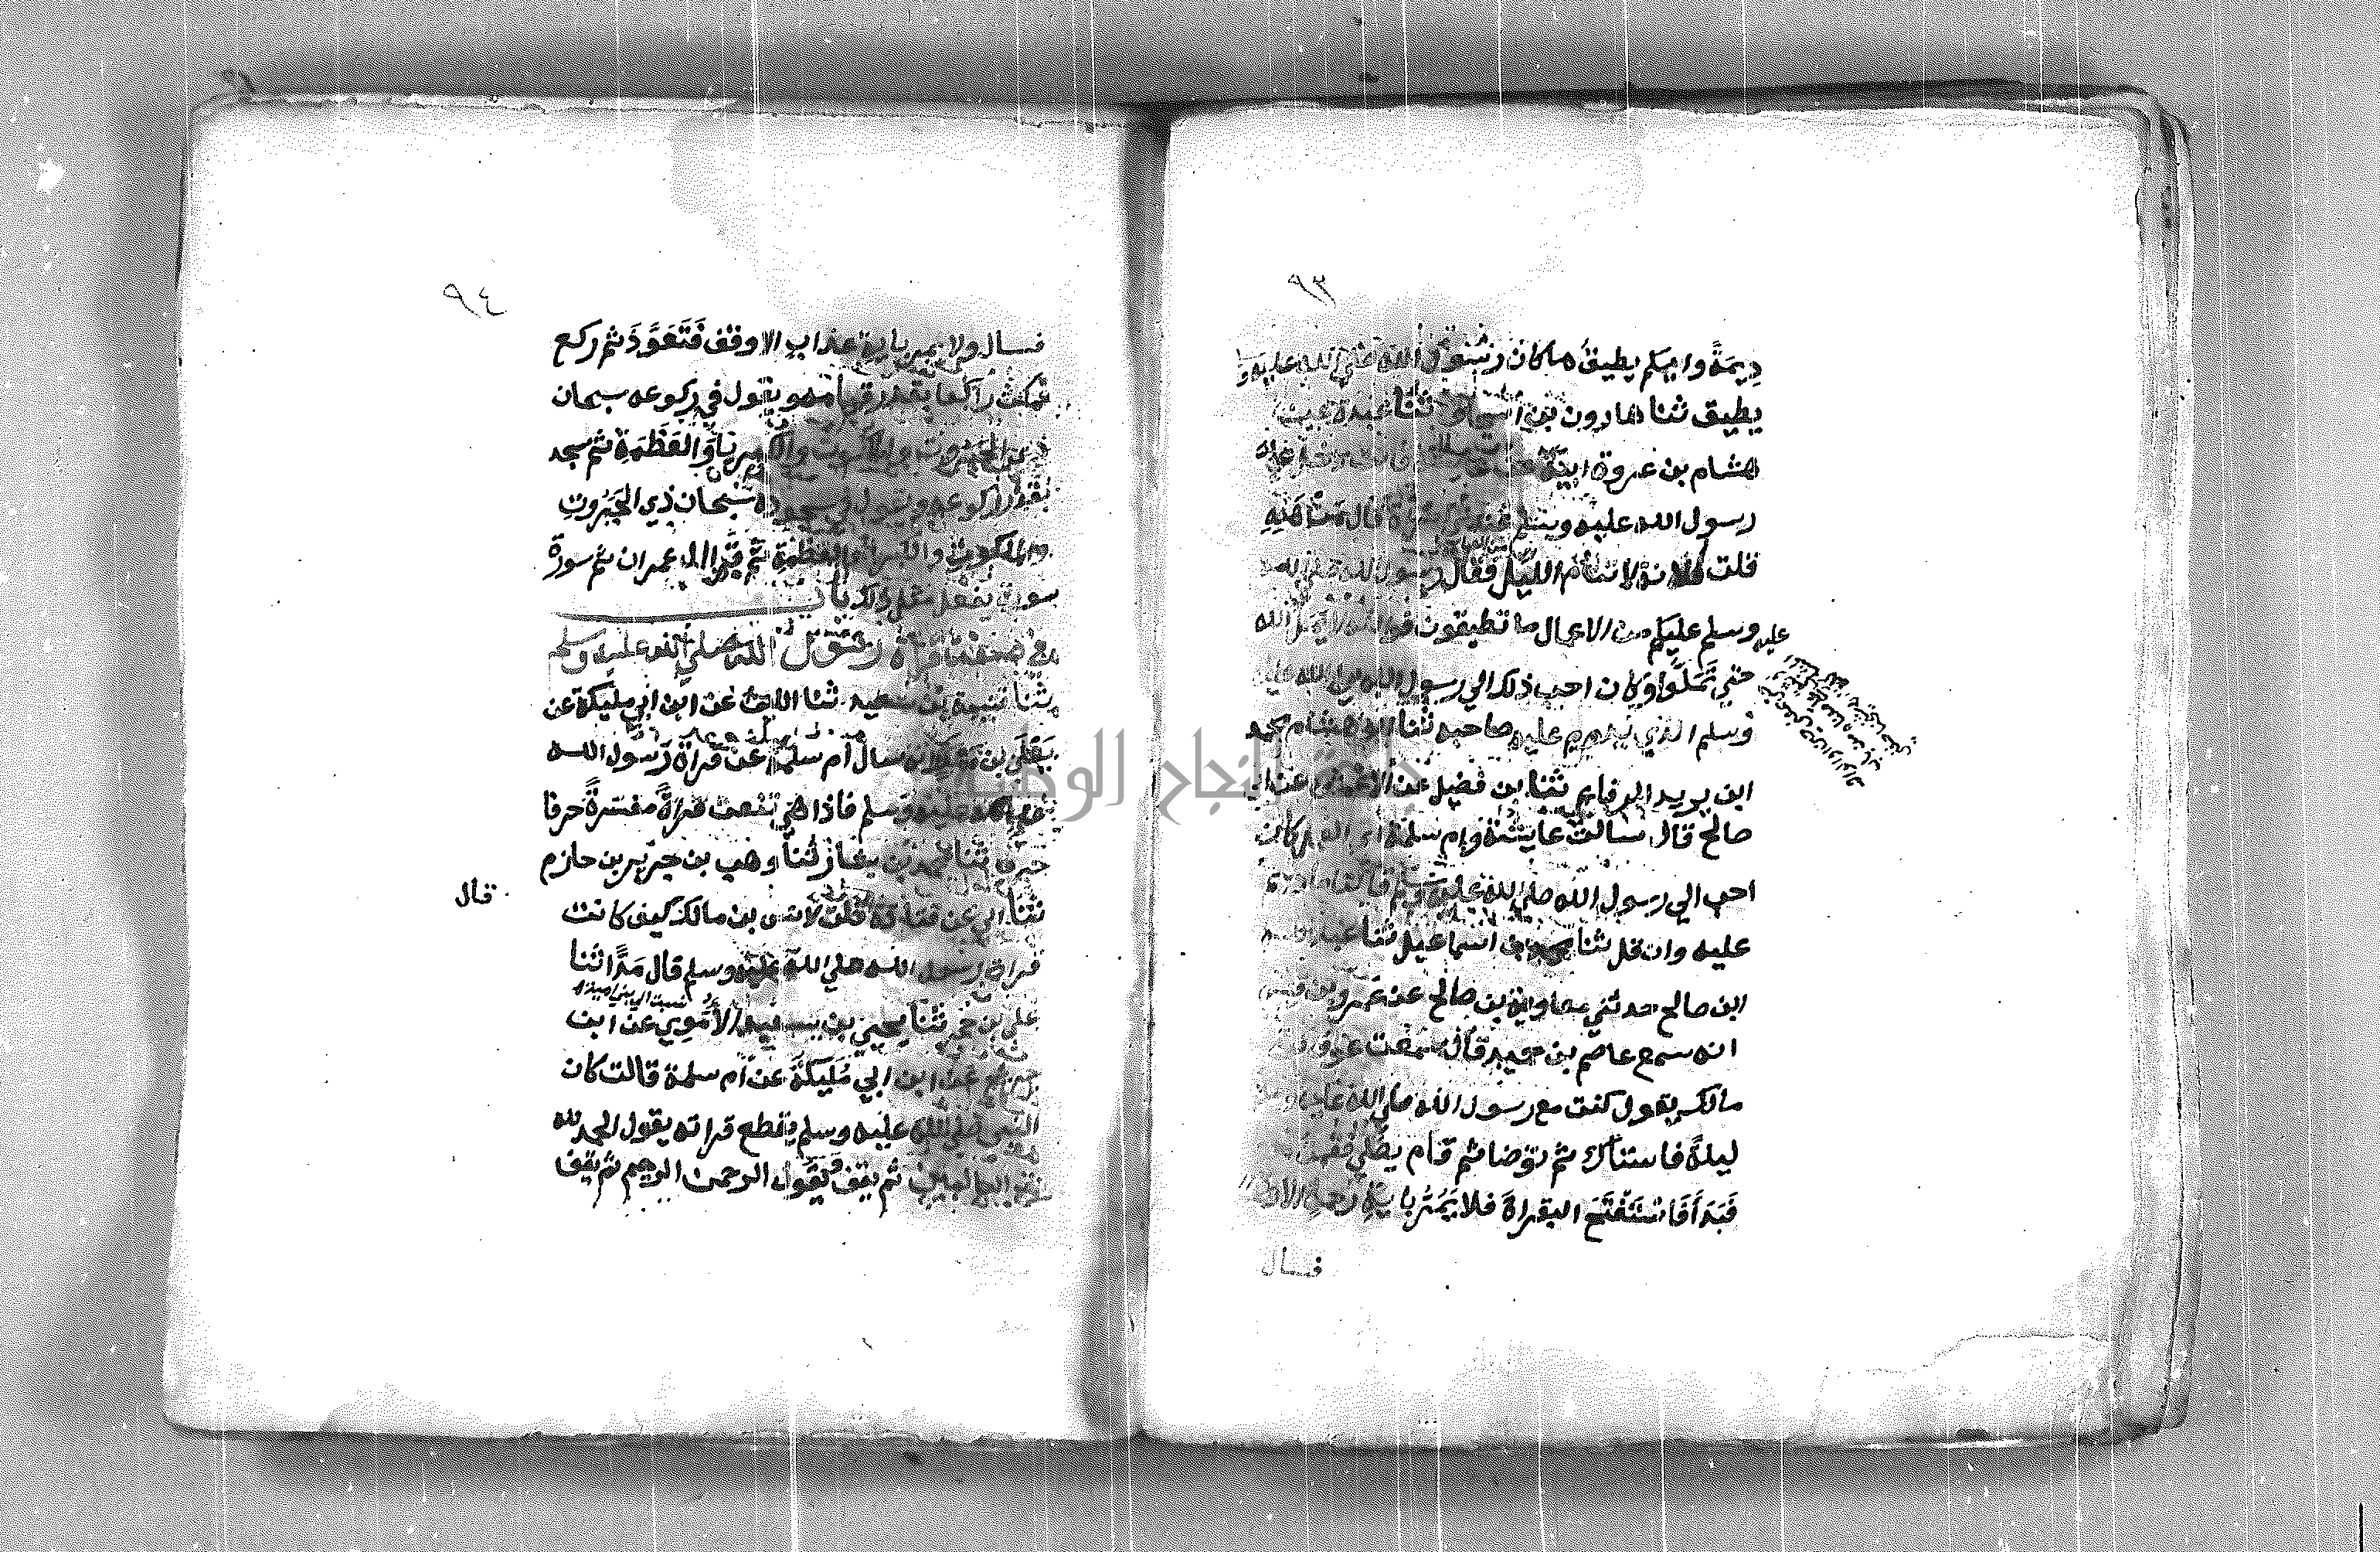 ٩٣
ديمةً وايكم يطيق ما كان رسول الله صلي الله عليه و
يطيق ثنا هارون بن اسحاق ثنا عبدة عن
هشام بن عروة عن ابيه عن عايشة قالت دخل علي
رسول الله عليه وسلم وعندي امراة فقال من هذه
قلت فلانة لا تنام الليل فقال رسول الله صلي الله
عليه وسلم عليكم من الاعمال ما تطيقون فوالله لا يمل الله
حتي تملوا وكان احب ذلك الي رسول الله صلي الله عليه
وسلم الذي يدوم عليه صاحبه ثنا ابو هشام محمد
ابن يزيد الرفاعي ثنا بن فضيل عن الاعمش عن ابي
صالح قال سالت عايشة وام سلمة اي العمل كان
احب الي رسول الله صلي الله عليه وسلم قالتا ما ديم
عليه وان قل ثنا محمد بن اسماعيل ثنا عبد الله
ابن صالح حدثني معاوية بن صالح عن عمرو بن قيس
انه سمع عاصم بن حميد قال سمعت عوف بن
مالك يقول كنت مع رسول الله صلي الله عليه وسلم
ليلةً فاستاك ثم توضا ثم قام يصلي فقمت
فَبَدَأَ فَاسْتَفْتَحَ البقراة فلا يَمُرُّ باية رحمة الا وقف
فسال
٩٤
فسال ولا يمر باية عذاب الا وقف فَتَعَوَّذَ ثم ركع
فمكث راكعا بقدر قيامه ويقول في ركوعه سبحان
ذي الجبروت والملكوت والكبرياو العَظَمَةِ ثم سجد
بقدر ركوعه ويقول في سجوده سُبحان ذي الجَبَرُوتِ
والملكوت والكبرياء والعظمة ثم قرا ال عمران ثم سورة
سورة يفعل مثل ذلك باب
في صفة قراة رسول الله صلي الله عليه وسلم
ثنا قتيبة بن سعيد ثنا الليث عن ابن ابي مليكة عن
يَعْلَي بن مملك انه سال ام سلمة عن قراة رسول الله
صلي الله عليه وسلم فاذا هي تنعت قراةً مفسرةً حرفا
حرفا ثنا محمد بن بشار ثنا وهب بن جرير بن حازم
ثنا ابي عن قتادة قال قلت لانس بن مالك كيف كانت
قال
قراة رسول الله صلي الله عليه وسلم قال مَدًّا ثنا
نسبة الي بني امية
علي بن حجر ثنا يحيي بن سعيد الأموي عن ابن
جريج عن ابن ابي مُلَيكَةَ عن أم سلمة قالت كان
النبي صلي الله عليه وسلم يقطع قراته يقول الحمد لله
رب العالمين ثم يقف ويقول الرحمن الرحيم ثم يقف
جامعة النجاح الوطنية